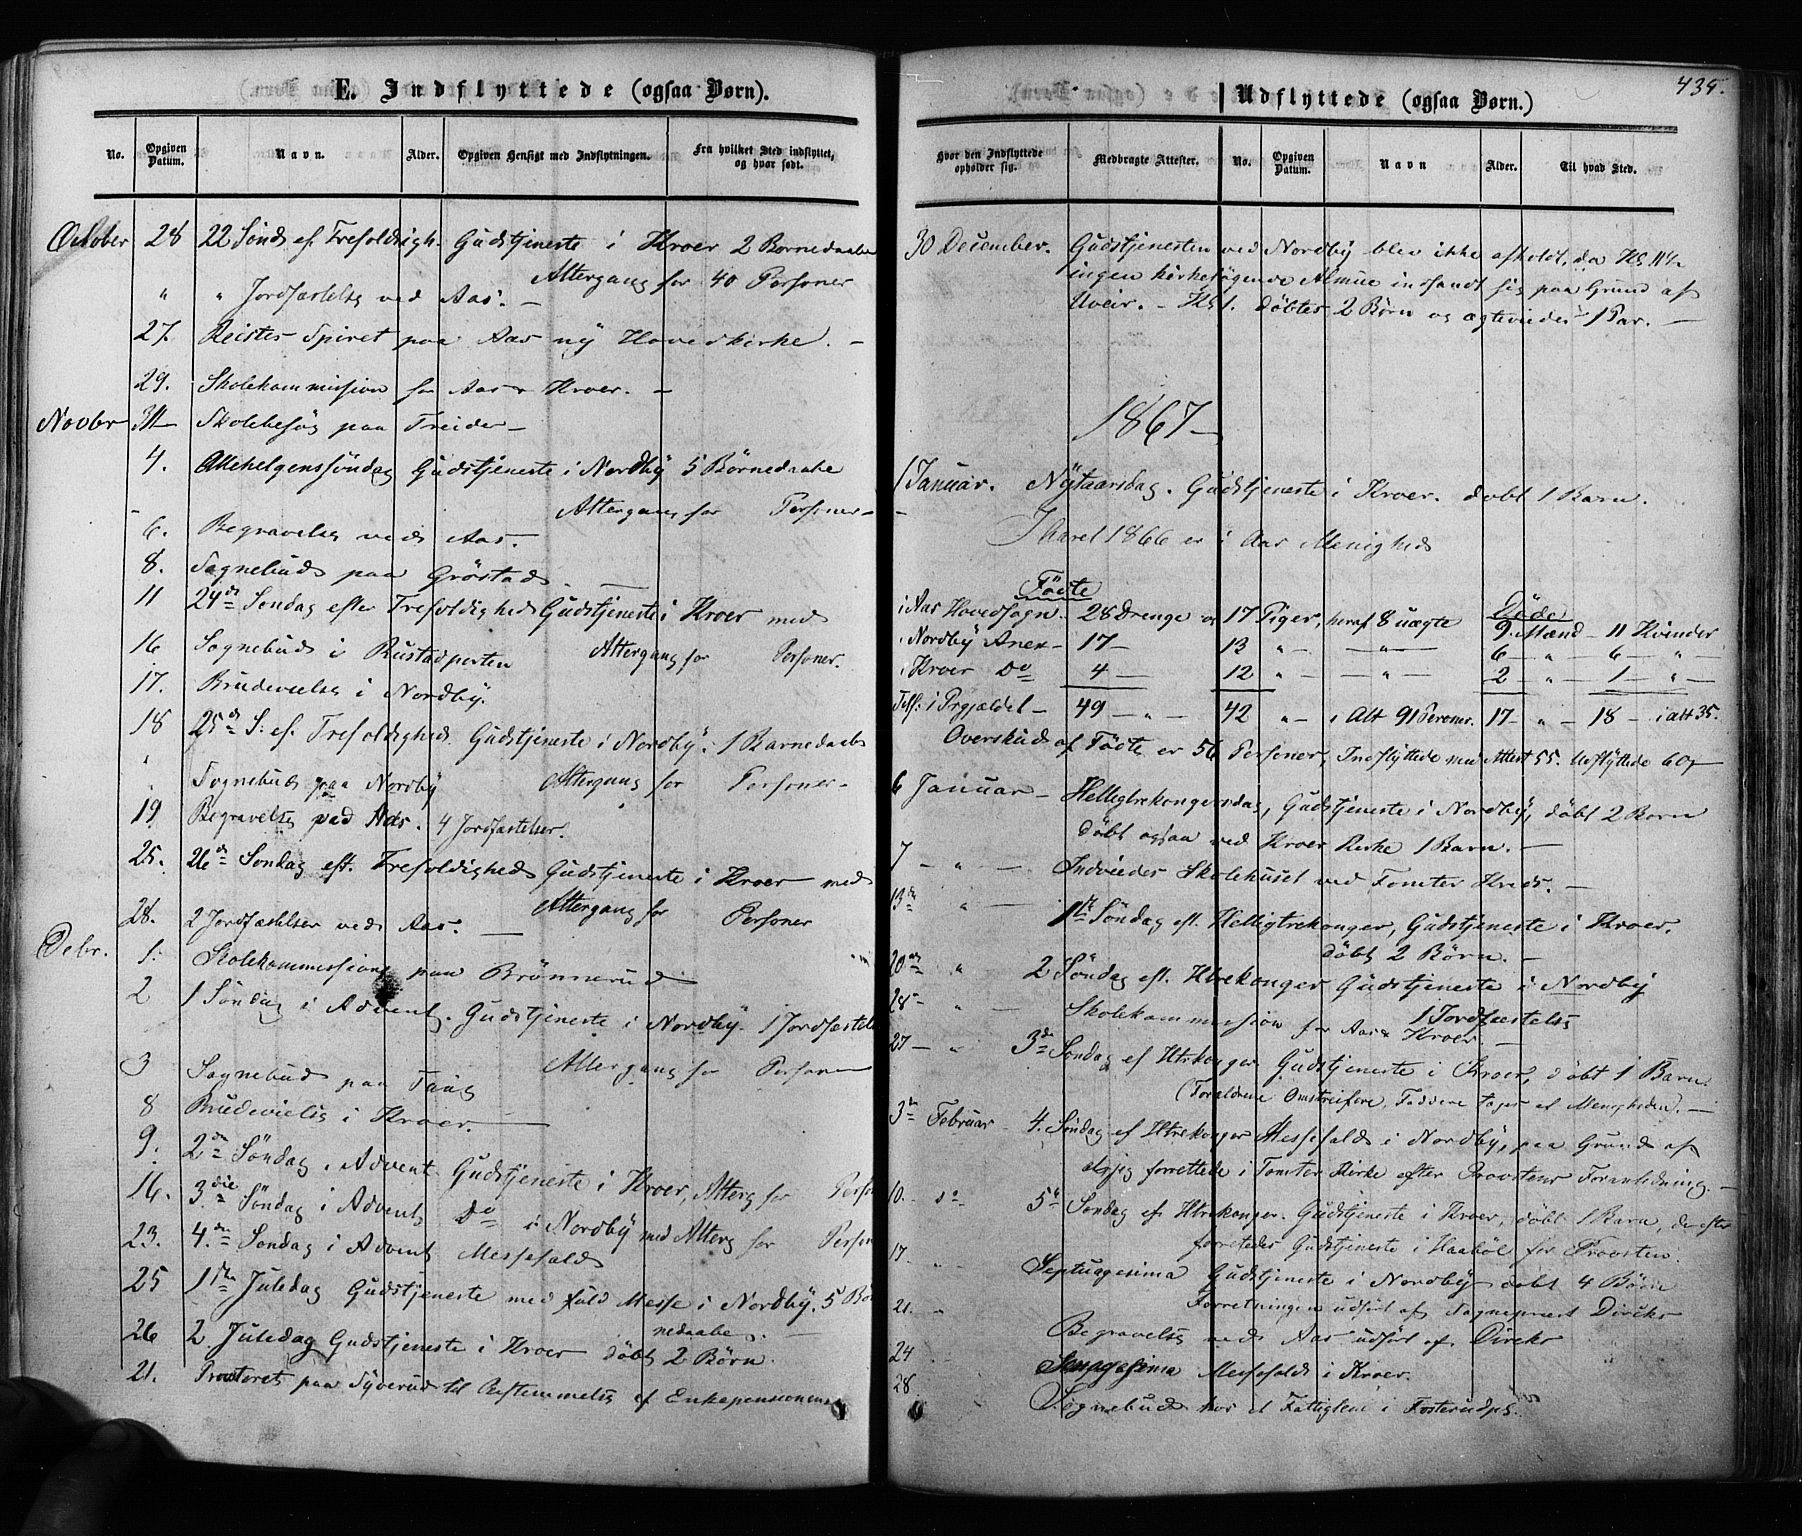 E. Indflyttede (ogsaa Børn).
No. Opgiven Datum. Navn. Alder. Opgiven Hensigt med Indflytningen. Fra hvilket Sted indflyttet, og hvor født.
October 28 22 Sönds ef. Trefoldigh. Gudstjeneste i Kroer 2 Bornedaabe
Altergang for 40 Personer
" " Jordfæstelse ved Aas. –
27. Reistes Spiret paa Aas ny Hovedkirke. –
29. Skolekommission for Aas & Kroer. –
Novbr Skolebesög paa Treider –
4. Allehelgenssöndag Gudstjeneste i Nordby 5 Börnedaabe
Altergang for Personer –
6. Begravelse ved Aas.
8. Sognebud paa Gröstad.
11 24de Söndag efter Trefoldighed Gudstjeneste i Kroer med
Altergang for Personer.
16 Sognebud i Rustadporten
17. Brudevielse i Nordby.
18 25de S. ef. Trefoldighed. Gudstjeneste i Nordby. 1 Barnedaab
" Sognebud paa Nordby Altergang for Personer –
19. Begravelse ved Aas. 4 Jordfæstelser.
25. 26de Söndag eft. Trefoldighed Gudstjeneste i Kroer med
Altergang for Personer
28. 2 Jordfæstelser ved Aas. –
Debr. 1. Skolekommission paa Brönnerud
2 1 Söndag i Advent. Gudstjeneste i Nordby. 1 Jordfæstel
Altergang for Person
3 Sognebud paa Taug
8 Brudevielse i Kroer. –
9. 2de Söndag i Advent Gudstjeneste i Kroer, Alterg for Perso
16. 3die Söndag i Advent Do i Nordby med Alterg for Person
23. 4de Söndag i Advent Messefald
25 1ste Juledag Gudstjeneste med fuld Messe i Nordby. 5 Bör
nedaabe. –
26 2. Juledag Gudstjeneste i Kroer döbt 2 Börn.
21. paa Syverud til Bestemmelse af Enkepensionen
Udflyttede (ogsaa Børn.)
435.
Hvor den Indflyttede opholder sig. Medbragte Attester. No. Opgiven Datum. Navn Alder. Til hvad Sted.
30 December. Gudstjenesten ved Nordby blev ikke afholdt, da Kl 11½
ingen kirkesögende Almue indfandt sig paa Grund af
Uveir. – Kl 1. döbtes 2 Börn og ægteviedes 1 Par. –
1867 –
1 Januar. Nytaarsdag. Gudstjeneste i Kroer. döbt 1 Barn.
I Aaret 1866 er i Aas Menighed
Födte Döde
i Aas Hovedsogn. 28 Drenge og 17 Piger, heraf 8 uægte 9 Mænd – 11 Kvinder
i Nordby Anex – 17 – 13 " – – " – 6 – " 6 – " –
i Kroer Do 4 – 12 " – – " – 2 – " – 1 – " –
Tils. i Prgjældet – 49 – " – 42 " – i Alt 91 Personer. 17 – " – 18 – i alt 35.
Overskud af Födte er 56 Personer, Indflyttede med Attest 55. Udflyttede 60 –
6 Januar – Helligtrekongersdag, Gudstjeneste i Nordby, döbt 2 Börn
döbt ogsaa ved Kroer Kirke 1 Barn. –
7 – " – Indviedes Skolehuset ved Tomter Kreds. –
13de " – 1ste Söndag eft. Helligtrekonger, Gudstjeneste i Kroer.
döbt 2 Börn. –
20de " 2 Söndag eft. Htrekonger Gudstjeneste i Nordby
1 Jordfæstelse
Skolekommission for Aas & Kroer. –
27 – " 3de Söndag ef Htrekonger Gudstjeneste i Kroer, döbt 1 Barn.
(Forældrene Omstreifere, Faddere tages af Menigheden). –
3de Februar – 4. Söndag ef Htrekonger Messefald i Nordby, paa Grund af
at jeg forrettede i Tomter Kirke efter Provstens Foranledning. –
10. do 5te Söndag ef. Htrekonger. Gudstjeneste i Kroer, döbt 1 Barn, derefter
forrettedes Gudstjeneste i Haaböl for Provsten.
17. " Septuagesima Gudstjeneste i Nordby döbt 4 Börn
Forretningen udfört af Sogneprest Diriks
21. " Begravelse ved Aas udfört af Diriks
24 Sexagesima Messefald i Kroer.
28. Sognebud hos et Fattiglem i Fosterudpl.